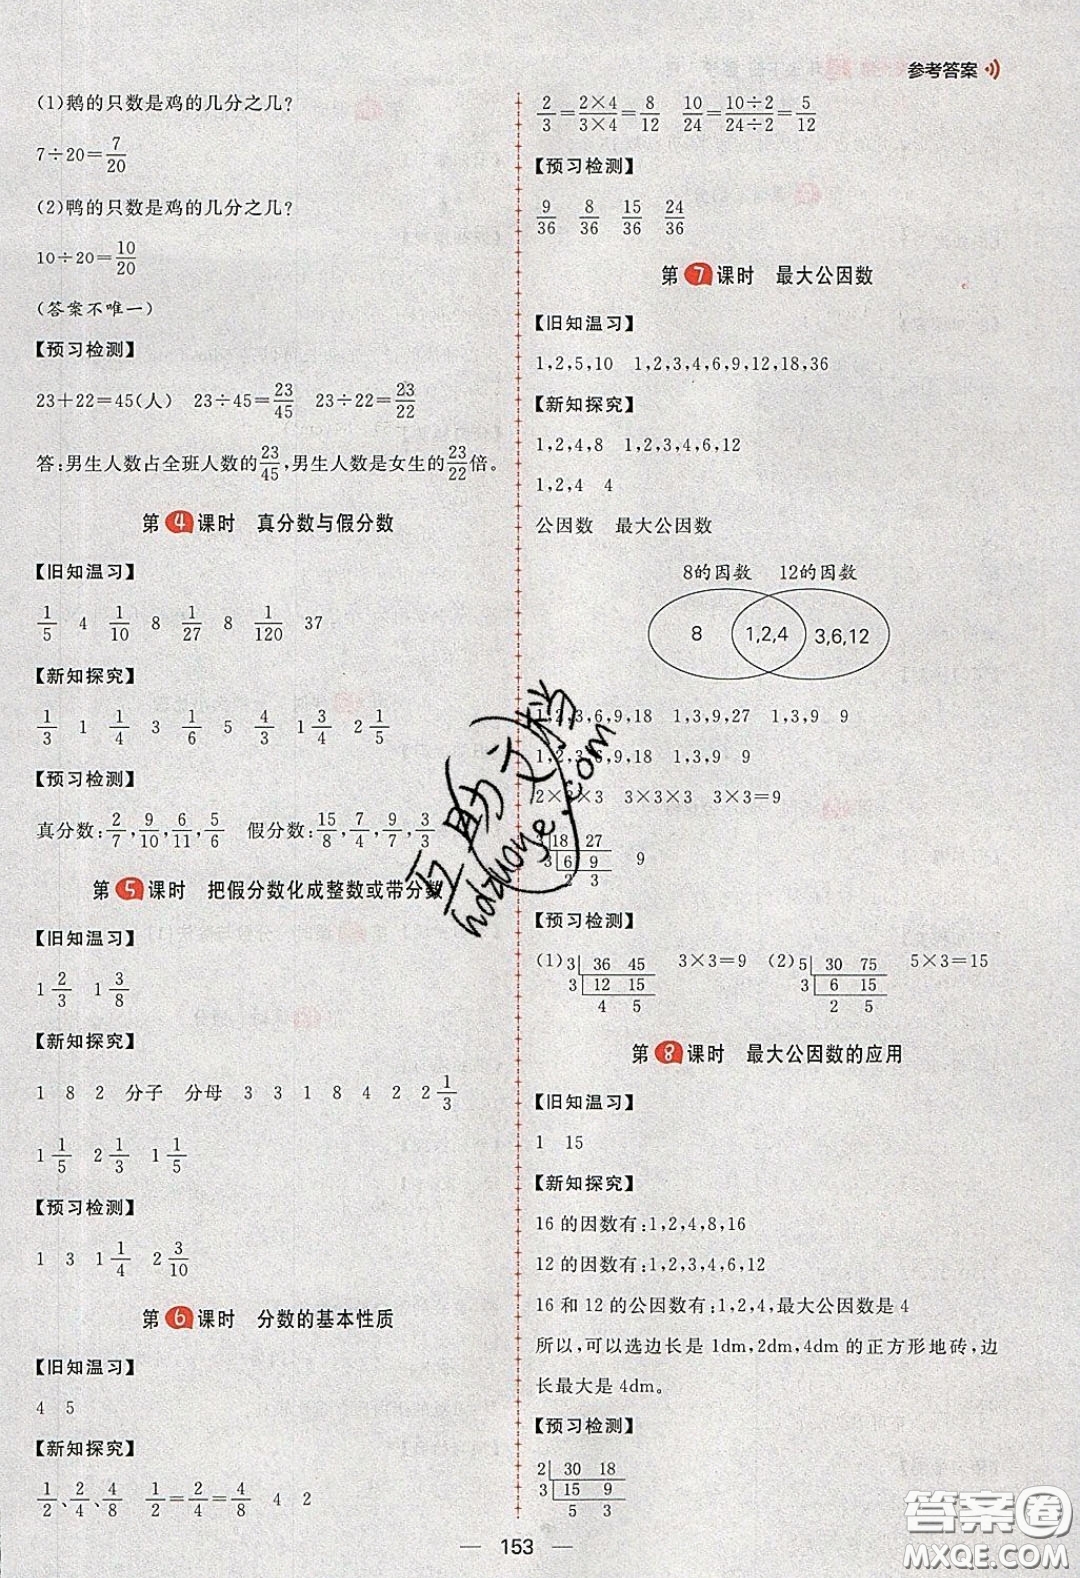 参考答案
(1)鹅的只数是鸡的几分之几?
7÷20=7/20
(2)鸭的只数是鸡的几分之几?
10÷20=10/20
(答案不唯一)
【预习检测】
23+22=45(人) 23÷45=23/45 23÷22=23/22
答:男生人数占全班人数的23/45,男生人数是女生的23/22倍。
第4课时 真分数与假分数
【旧知温习】
1/5 4 1/10 8 1/27 8 1/120 37
【新知探究】
1/3 1 1/4 3 5 4/3 1 3/4 2 1/5
【预习检测】
真分数:2/7,9/10,6/11,5/6 假分数:15/8,7/4,9/7,3/3
第5课时 把假分数化成整数或带分数
【旧知温习】
1 2/3 1 3/8
【新知探究】
1 8 2 分子 分母 3 3 1 8 4 2 2 1/3
1 1/5 2 1/3 1 1/5
【预习检测】
1 3 1 1/4 2 3/10
第6课时 分数的基本性质
【旧知温习】
4 5
【新知探究】
1/2、2/4、4/8 1/2=2/4=4/8 4 2
2/3=2×4/3×4=8/12 10/24=10÷2/24÷2=5/12
【预习检测】
9/36 8/36 15/36 24/36
第7课时 最大公因数
【旧知温习】
1,2,5,10 1,2,3,4,6,9,12,18,36
【新知探究】
1,2,4,8 1,2,3,4,6,12
1,2,4 4
公因数 最大公因数
8的因数 12的因数
8 1,2,4 3,6,12
1,2,3,6,9,18 1,3,9,27 1,3,9 9
1,2,3,6,9,18 1,3,9 9
2×3×3 3×3×3 3×3=9
3 18 27
3 6 9 9
2 3
【预习检测】
(1) 3 36 45 3×3=9 (2) 5 30 75 5×3=15
3 12 15 3 6 15
4 5 2 5
第8课时 最大公因数的应用
【旧知温习】
1 15
【新知探究】
16的因数有:1,2,4,8,16
12的因数有:1,2,3,4,6,12
16和12的公因数有:1,2,4,最大公因数是4
所以,可以选边长是1dm,2dm,4dm的正方形地砖,边
长最大是4dm。
【预习检测】
2 30 18
3 15 9
5 3
153
互助文档
hdzuoye.com
答案圈
MXQE.COM